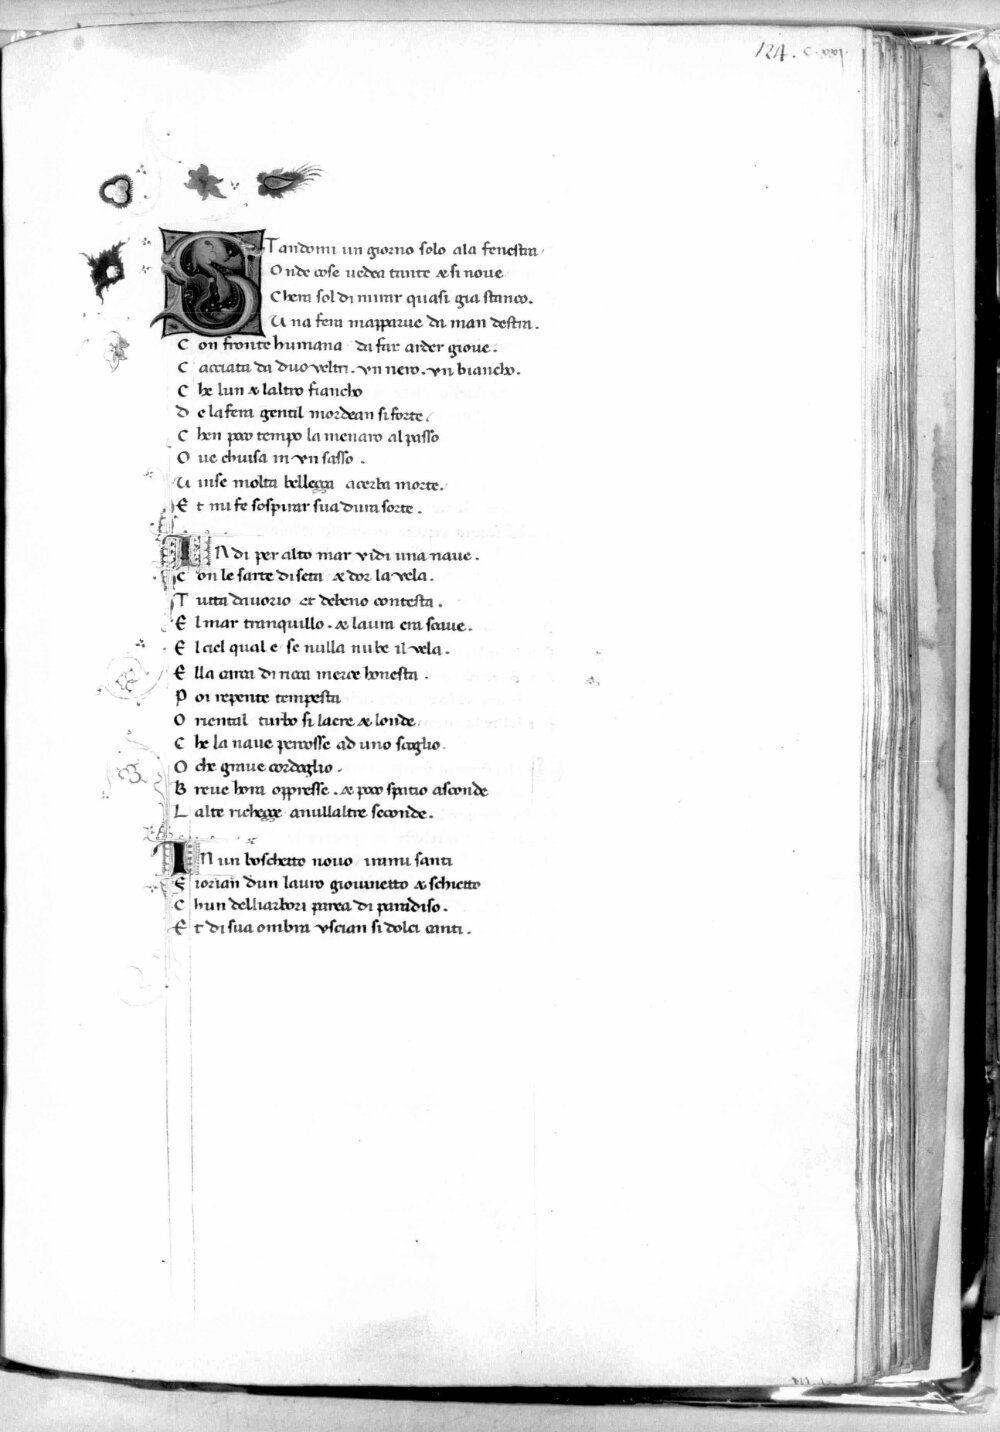 124. c. xxxj.
STandomi un giorno solo ala fenestra.
Onde cose uedea tante & si noue
Chera sol di mirar quasi gia stanco.
Una fera mapparue da man destra.
Con fronte humana da far arder gioue.
Cacciata da duo veltri. vn nero. vn biancho.
Che lun & laltro fiancho
De la fera gentil mordean si forte.
Chen poco tempo la menaro al passo
Oue chiusa in vn sasso.
Uinse molta bellezza acerba morte.
Et mi fe sospirar sua dura sorte.
INdi per alto mar vidi una naue.
Con le sarte di seta & dor la vela.
Tutta dauorio et debeno contesta.
El mar tranquillo. & laura era soaue.
El ciel qual e se nulla nube il vela.
Ella carca di ricca merce honesta.
Poi repente tempesta
Oriental turbo si lacre & londe.
Che la naue percosse ad uno scoglio.
O che graue cordoglio.
Breue hora oppresse. & poco spatio asconde
Lalte richezze anullaltre seconde.
IN un boschetto nouo irami santi
Fiorian dun lauro giouinetto & schietto
Chun delliarbori parea di paradiso.
Et di sua ombra vscian si dolci canti.